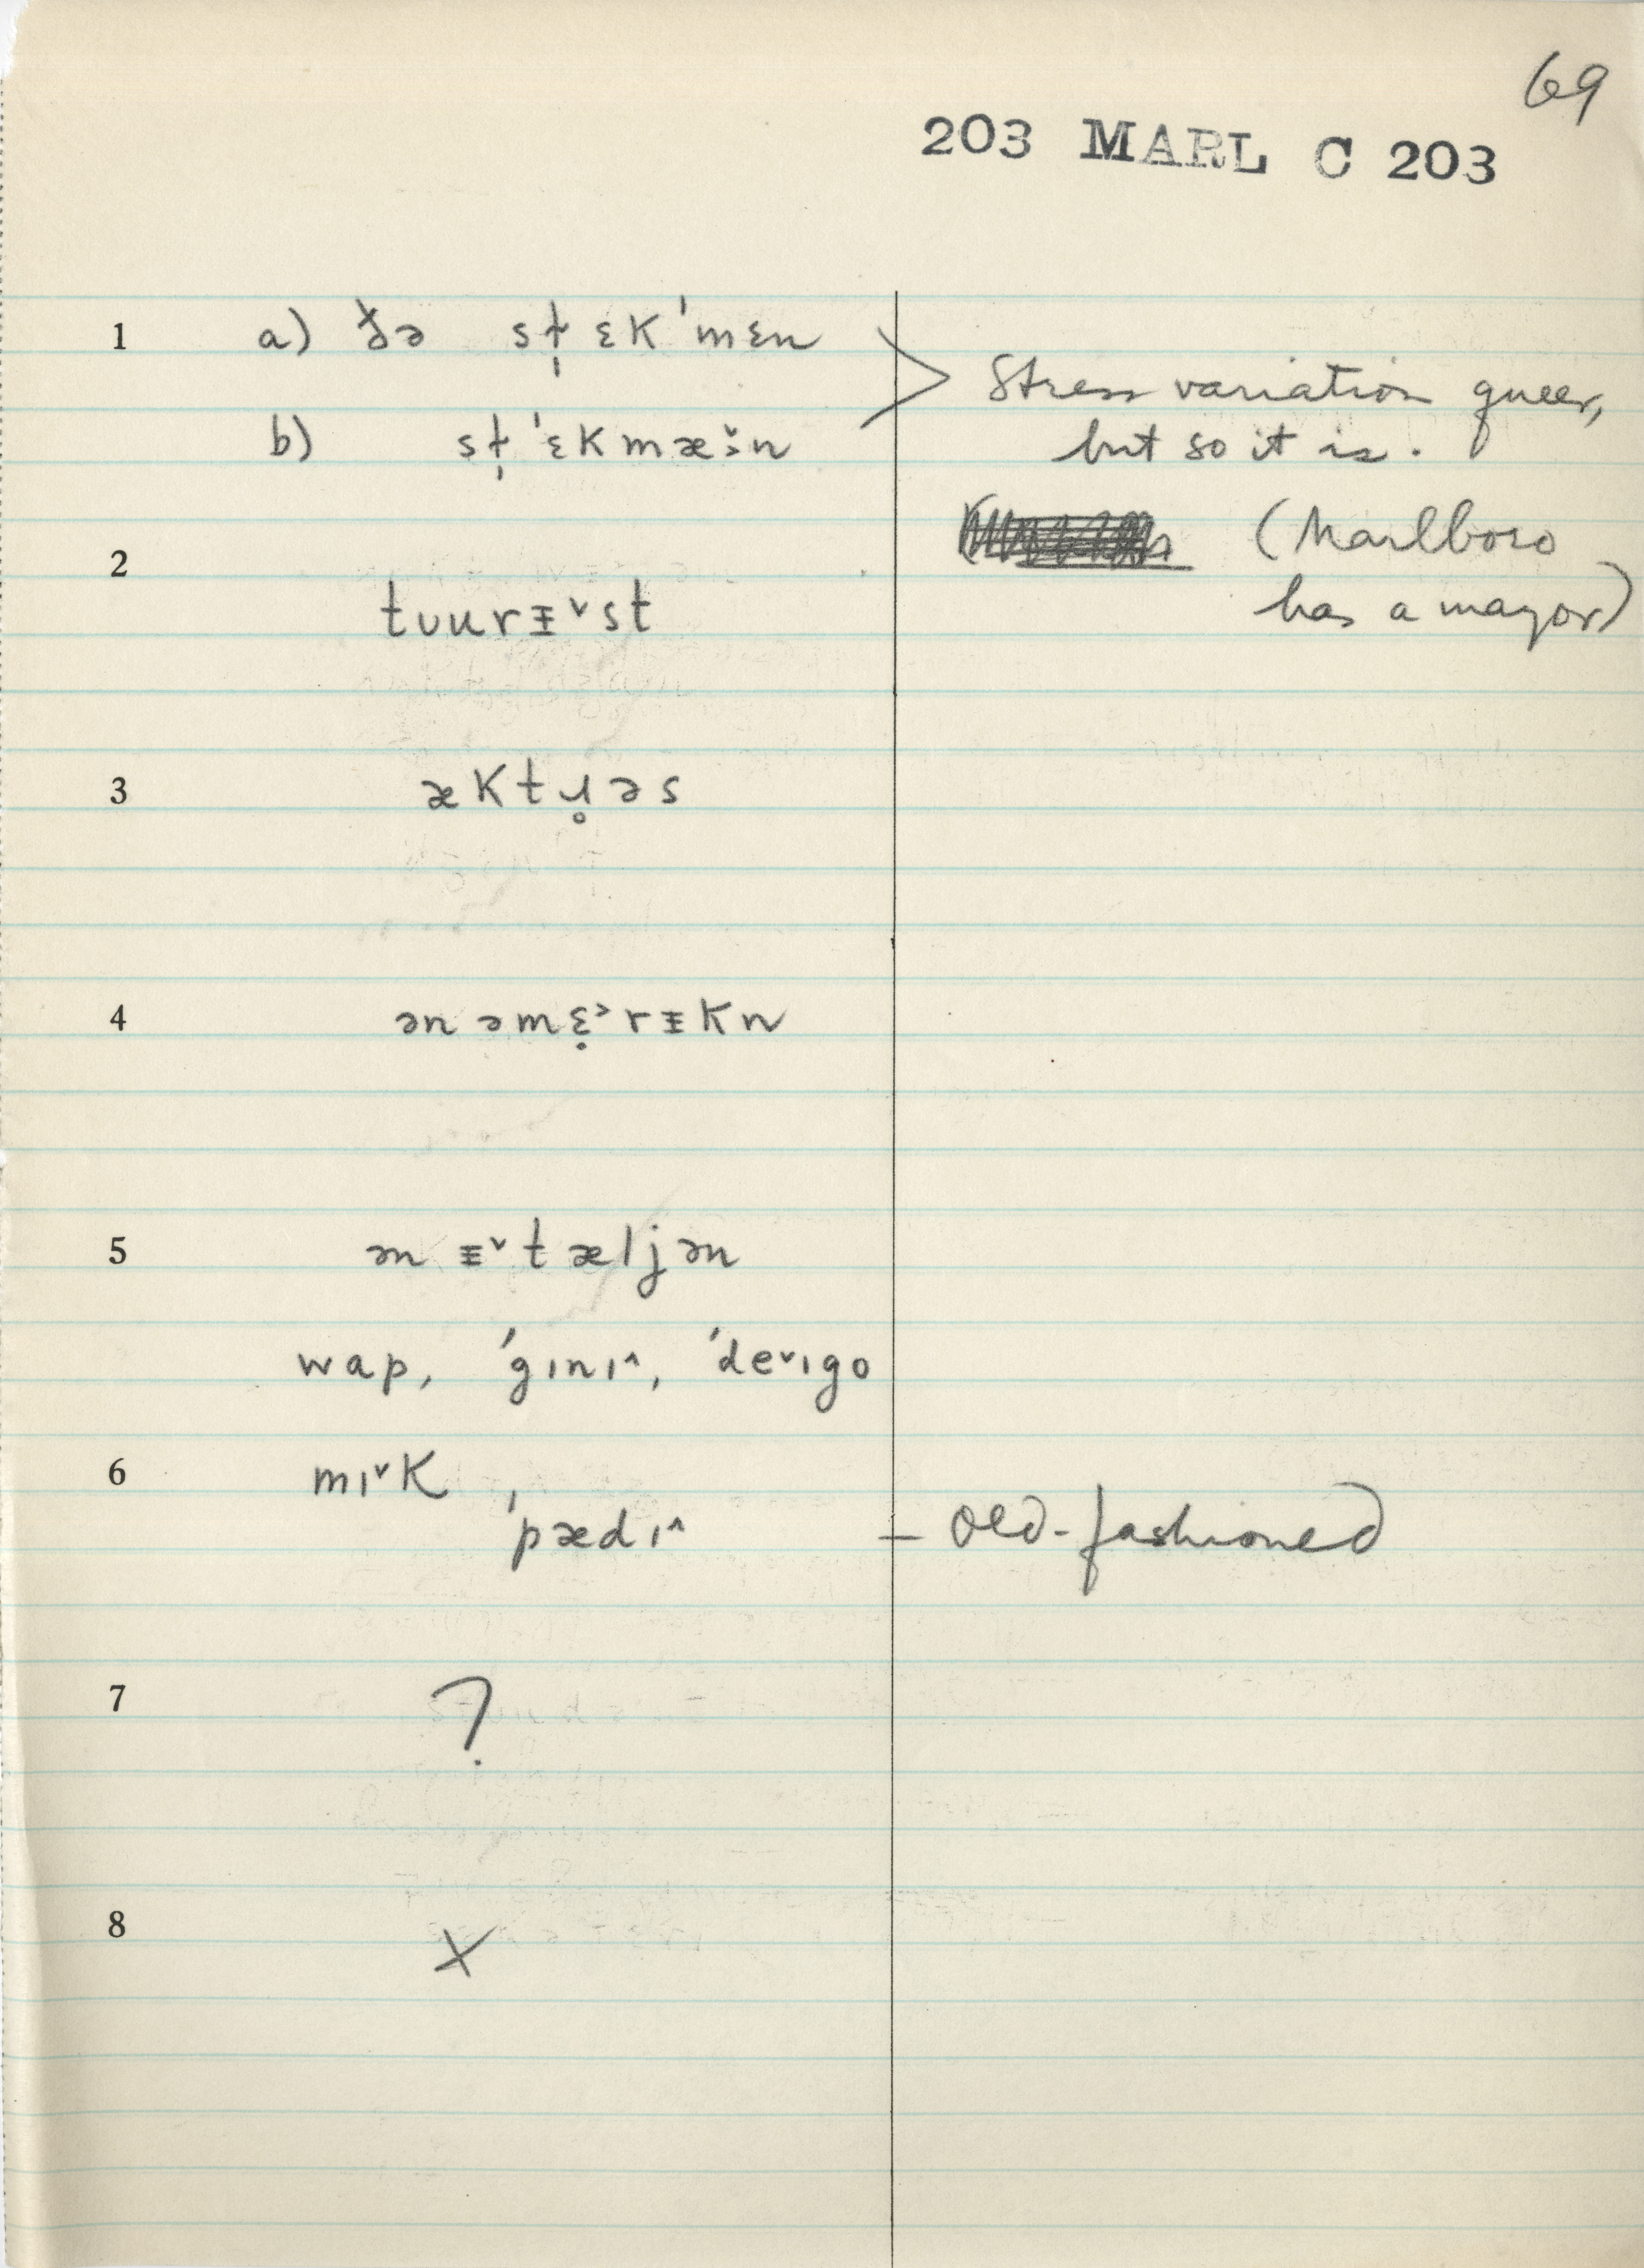 69
203 MARL C 203
1 a) ðə sṭɛk'mɛn
b) sṭ'ɛkmæ˞̌n
Stress variation queer,
but so it is.
(Marlboro
has a mayor)
2
tuurᵻ˅st
3 æktɹ̥əs
4 ən əmɛ̣˃rᵻkn
5 ən ᵻ˅tæljən
wap, 'gɪnɪ^, 'de˅ɪgo
6 mɪ˅k ,
'pædɪ^ – old-fashioned
7 ?
8 X